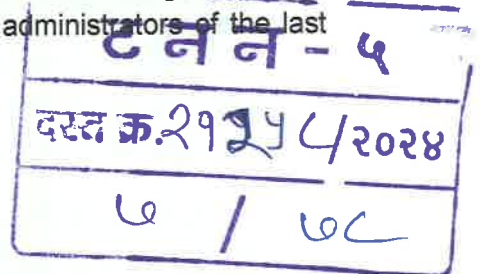 administrators of the last
ट न न - ५
दस्त क्र. /२०२४
७ / ७८